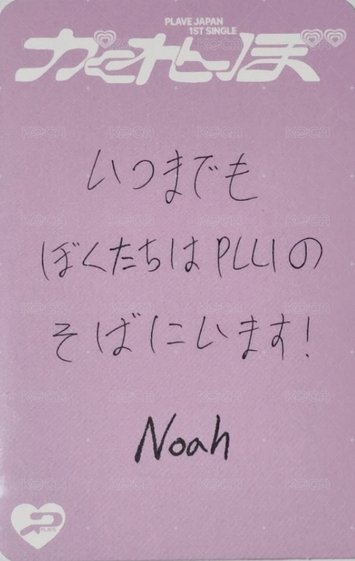 PLAVE JAPAN
1ST SINGLE
かくれんぼ
いつまでも
ぼくたちはPLLIの
そばにいます!
Noah
PLAVE